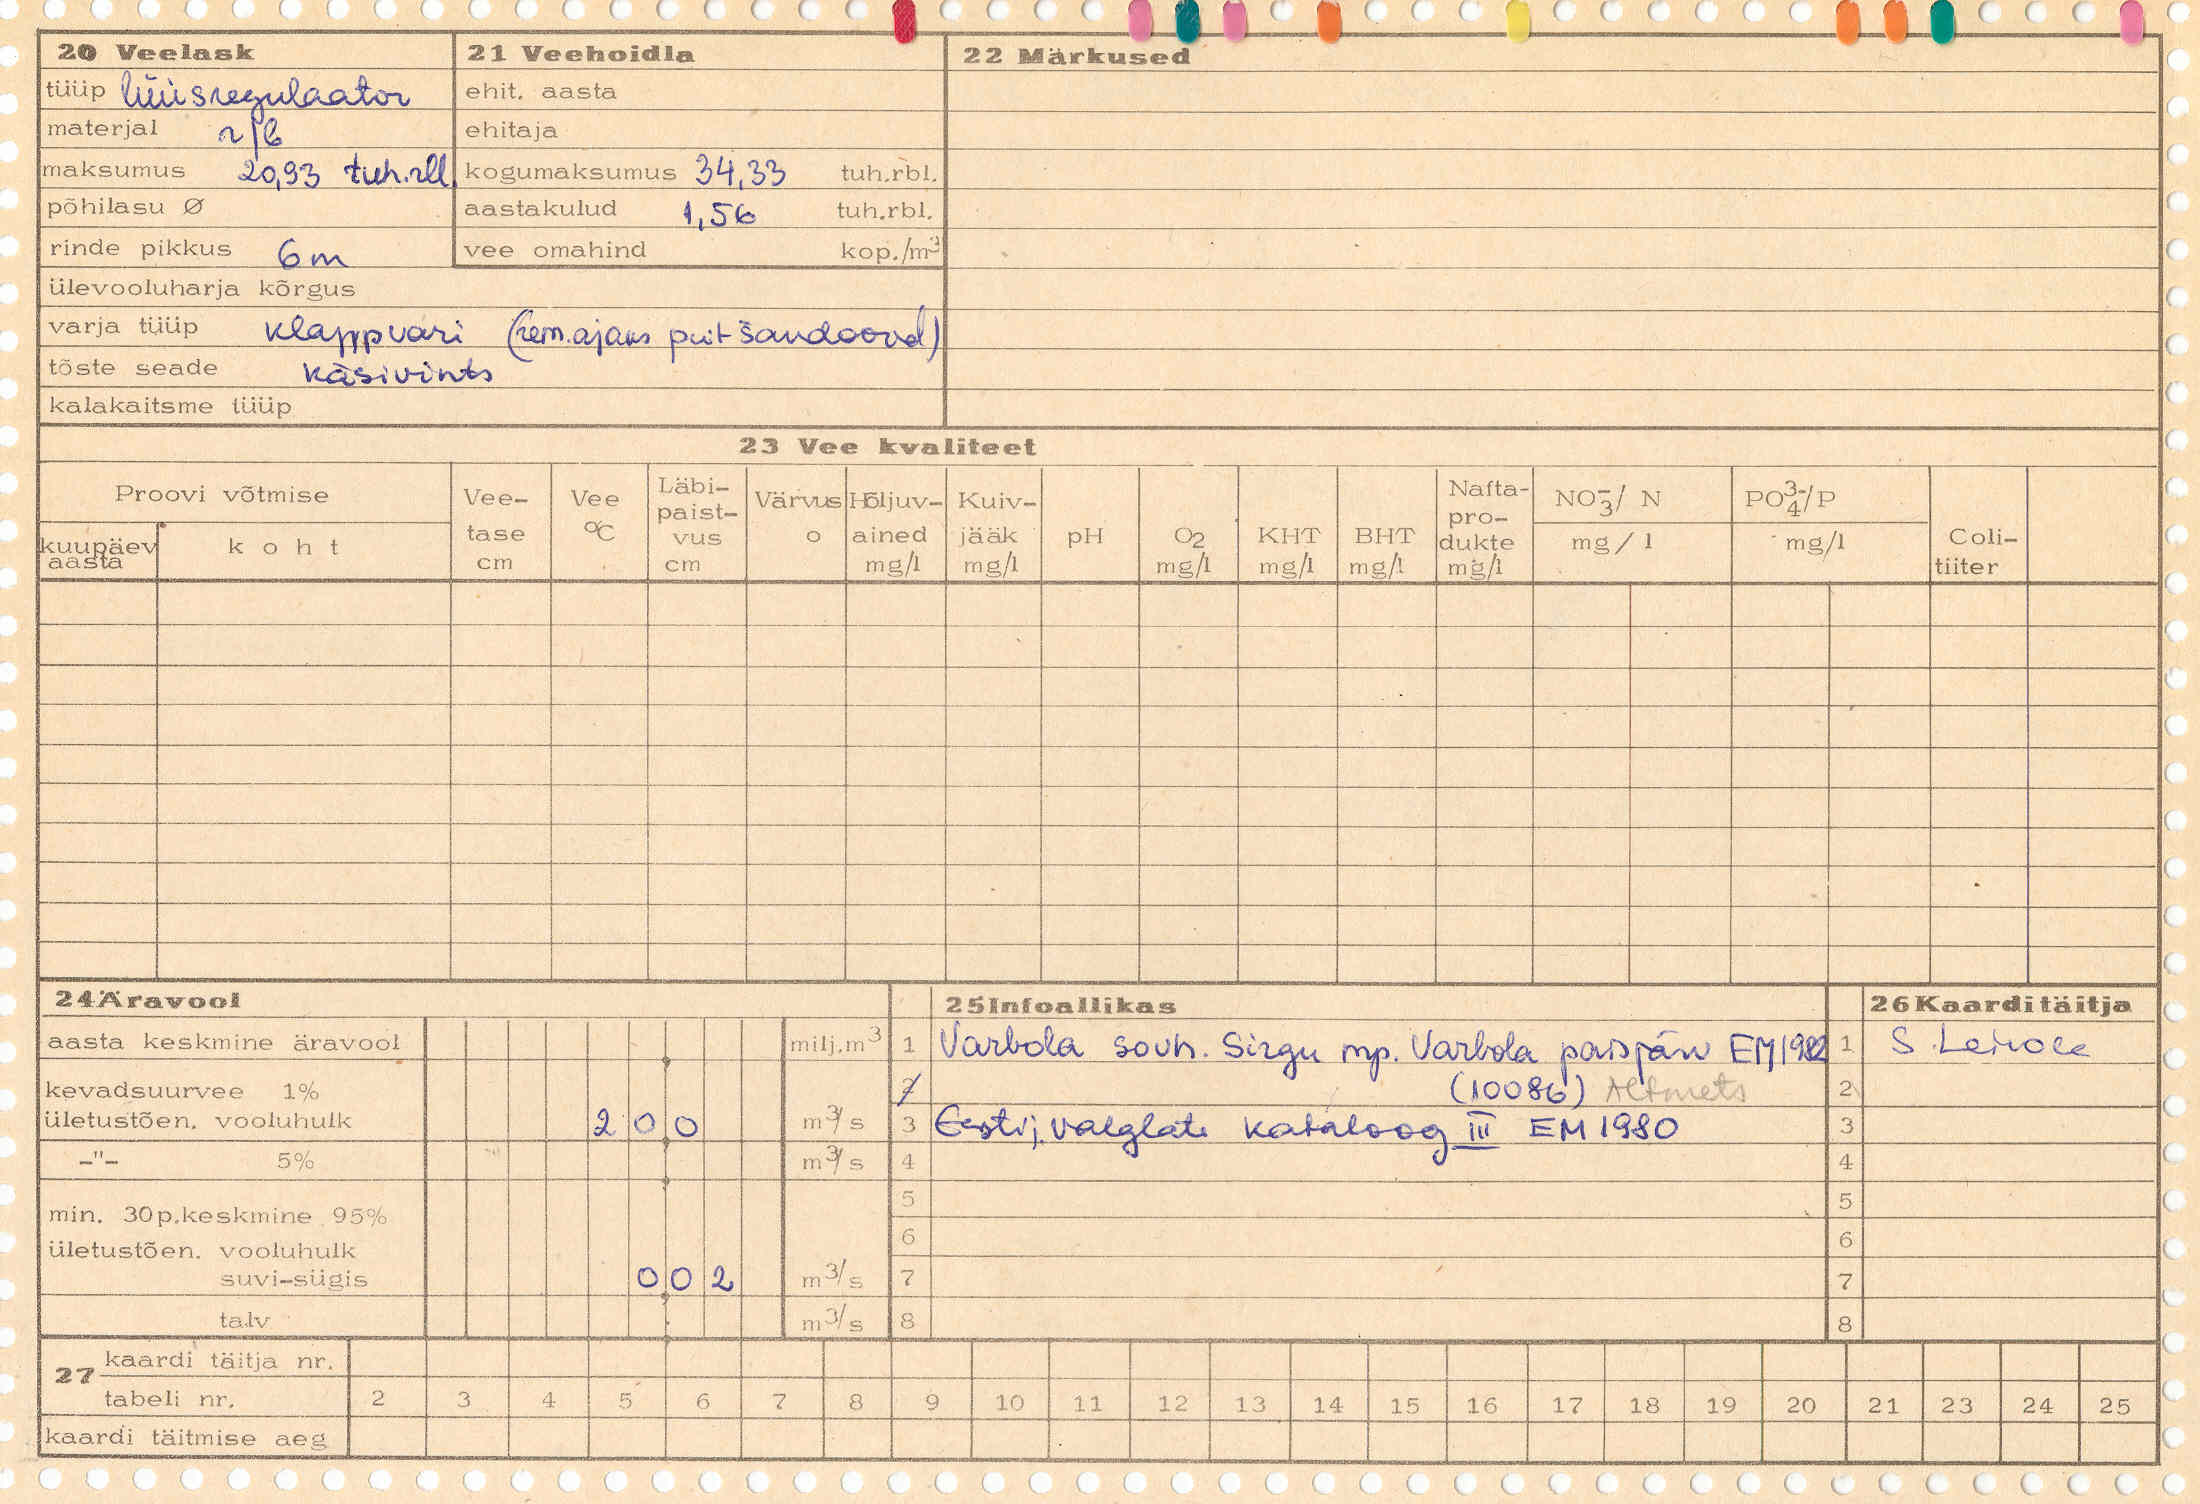 20 Veelask
tüüp lüüsregulaator
materjal r/b
maksumus 20,93 tuh.rbl.
põhilasu Ø
rinde pikkus 6m
ülevooluharja kõrgus
varja tüüp klappvari (rem.ajaks puit šandoorid)
tõste seade käsivints
kalakaitsme tüüp
21 Veehoidla
ehit. aasta
ehitaja
kogumaksumus 34,33 tuh.rbl.
aastakulud 1,56 tuh.rbl.
vee omahind kop./m³
22 Märkused
23 Vee kvaliteet
Proovi võtmise
kuupäev aasta
koht
Vee-
tase
cm
Vee
°C
Läbi-
paist-
vus
cm
Värvus
o
Hõljuv-
ained
mg/l
Kuiv-
jääk
mg/l
pH
O2
mg/l
KHT
mg/l
BHT
mg/l
Nafta-
pro-
dukte
mg/l
NO₃⁻/ N
mg/l
PO₄³⁻/P
mg/l
Coli-
tiiter
24 Äravool
aasta keskmine äravool milj.m³
kevadsuurvee 1%
ületustõen. vooluhulk 2 0 0 m³/s
-"- 5% m³/s
min. 30p.keskmine 95%
ületustõen. vooluhulk
suvi-sügis 0 0 2 m³/s
talv m³/s
25 Infoallikas
1 Varbola sovh. Sirgu mp. Varbola paisjärv EM 1982
2 (10086) Altmets
3 Eesti j. valglate kataloog III EM 1980
4
5
6
7
8
26 Kaarditäitja
1 S.
2
3
4
5
6
7
8
27
kaardi täitja nr.
tabeli nr. 2 3 4 5 6 7 8 9 10 11 12 13 14 15 16 17 18 19 20 21 23 24 25
kaardi täitmise aeg